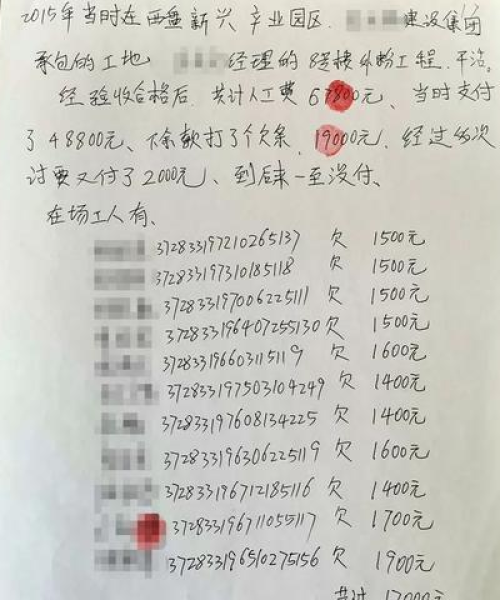 2015年当时在西盘新兴产业园区、建设集团
承包的工地 经理的8号楼外粉工程、干活。
经验收合格后、共计人工费67800元、当时支付
了48800元、下余款打了个欠条、19000元、经过多次
讨要又付了2000元、到后来一直没付、
在场工人有、
372833197210265137 欠 1500元
372833197310185118 欠 1500元
372833197006225111 欠 1500元
372833196407255130 欠 1500元
372833196603115119 欠 1600元
372833197503104249 欠 1400元
372833197608134225 欠 1400元
372833196306225119 欠 1600元
372833196712185116 欠 1400元
372833196711055117 欠 1700元
372833196510275156 欠 1900元
共计 17000元